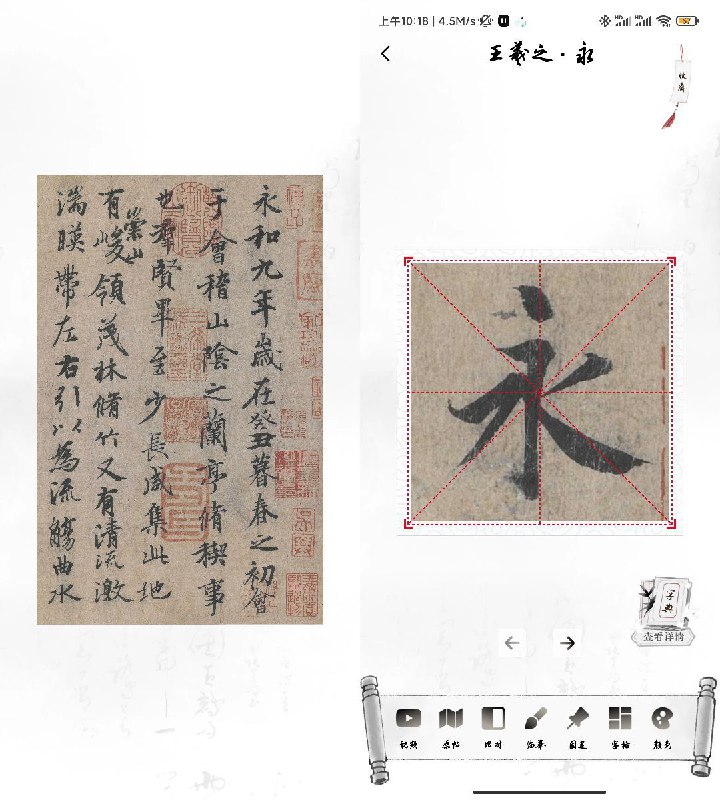 永和九年歲在癸丑暮春之初會
于會稽山陰之蘭亭脩稧事
也羣賢畢至少長咸集此地
有崇山峻領茂林脩竹又有清流激
湍暎帶左右引以為流觴曲水
上午10:18 | 4.5M/s
57
王羲之·永
收藏
字典
查看详情
视频
原帖
照对
临摹
固定
宫格
颜色